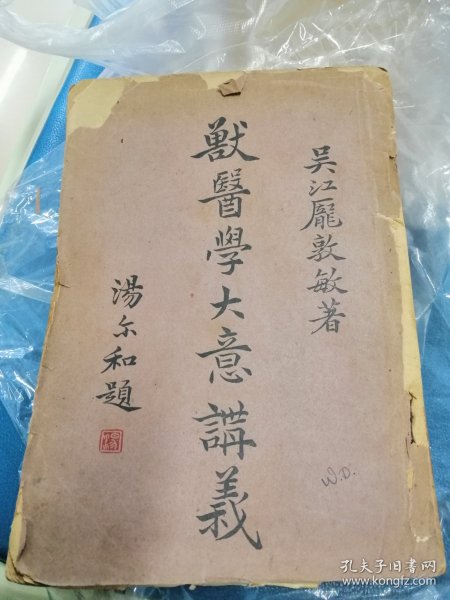 吴江龐敦敏著
獸醫學大意講義
湯尔和題
W.D.
孔夫子旧书网
www.kongfz.com